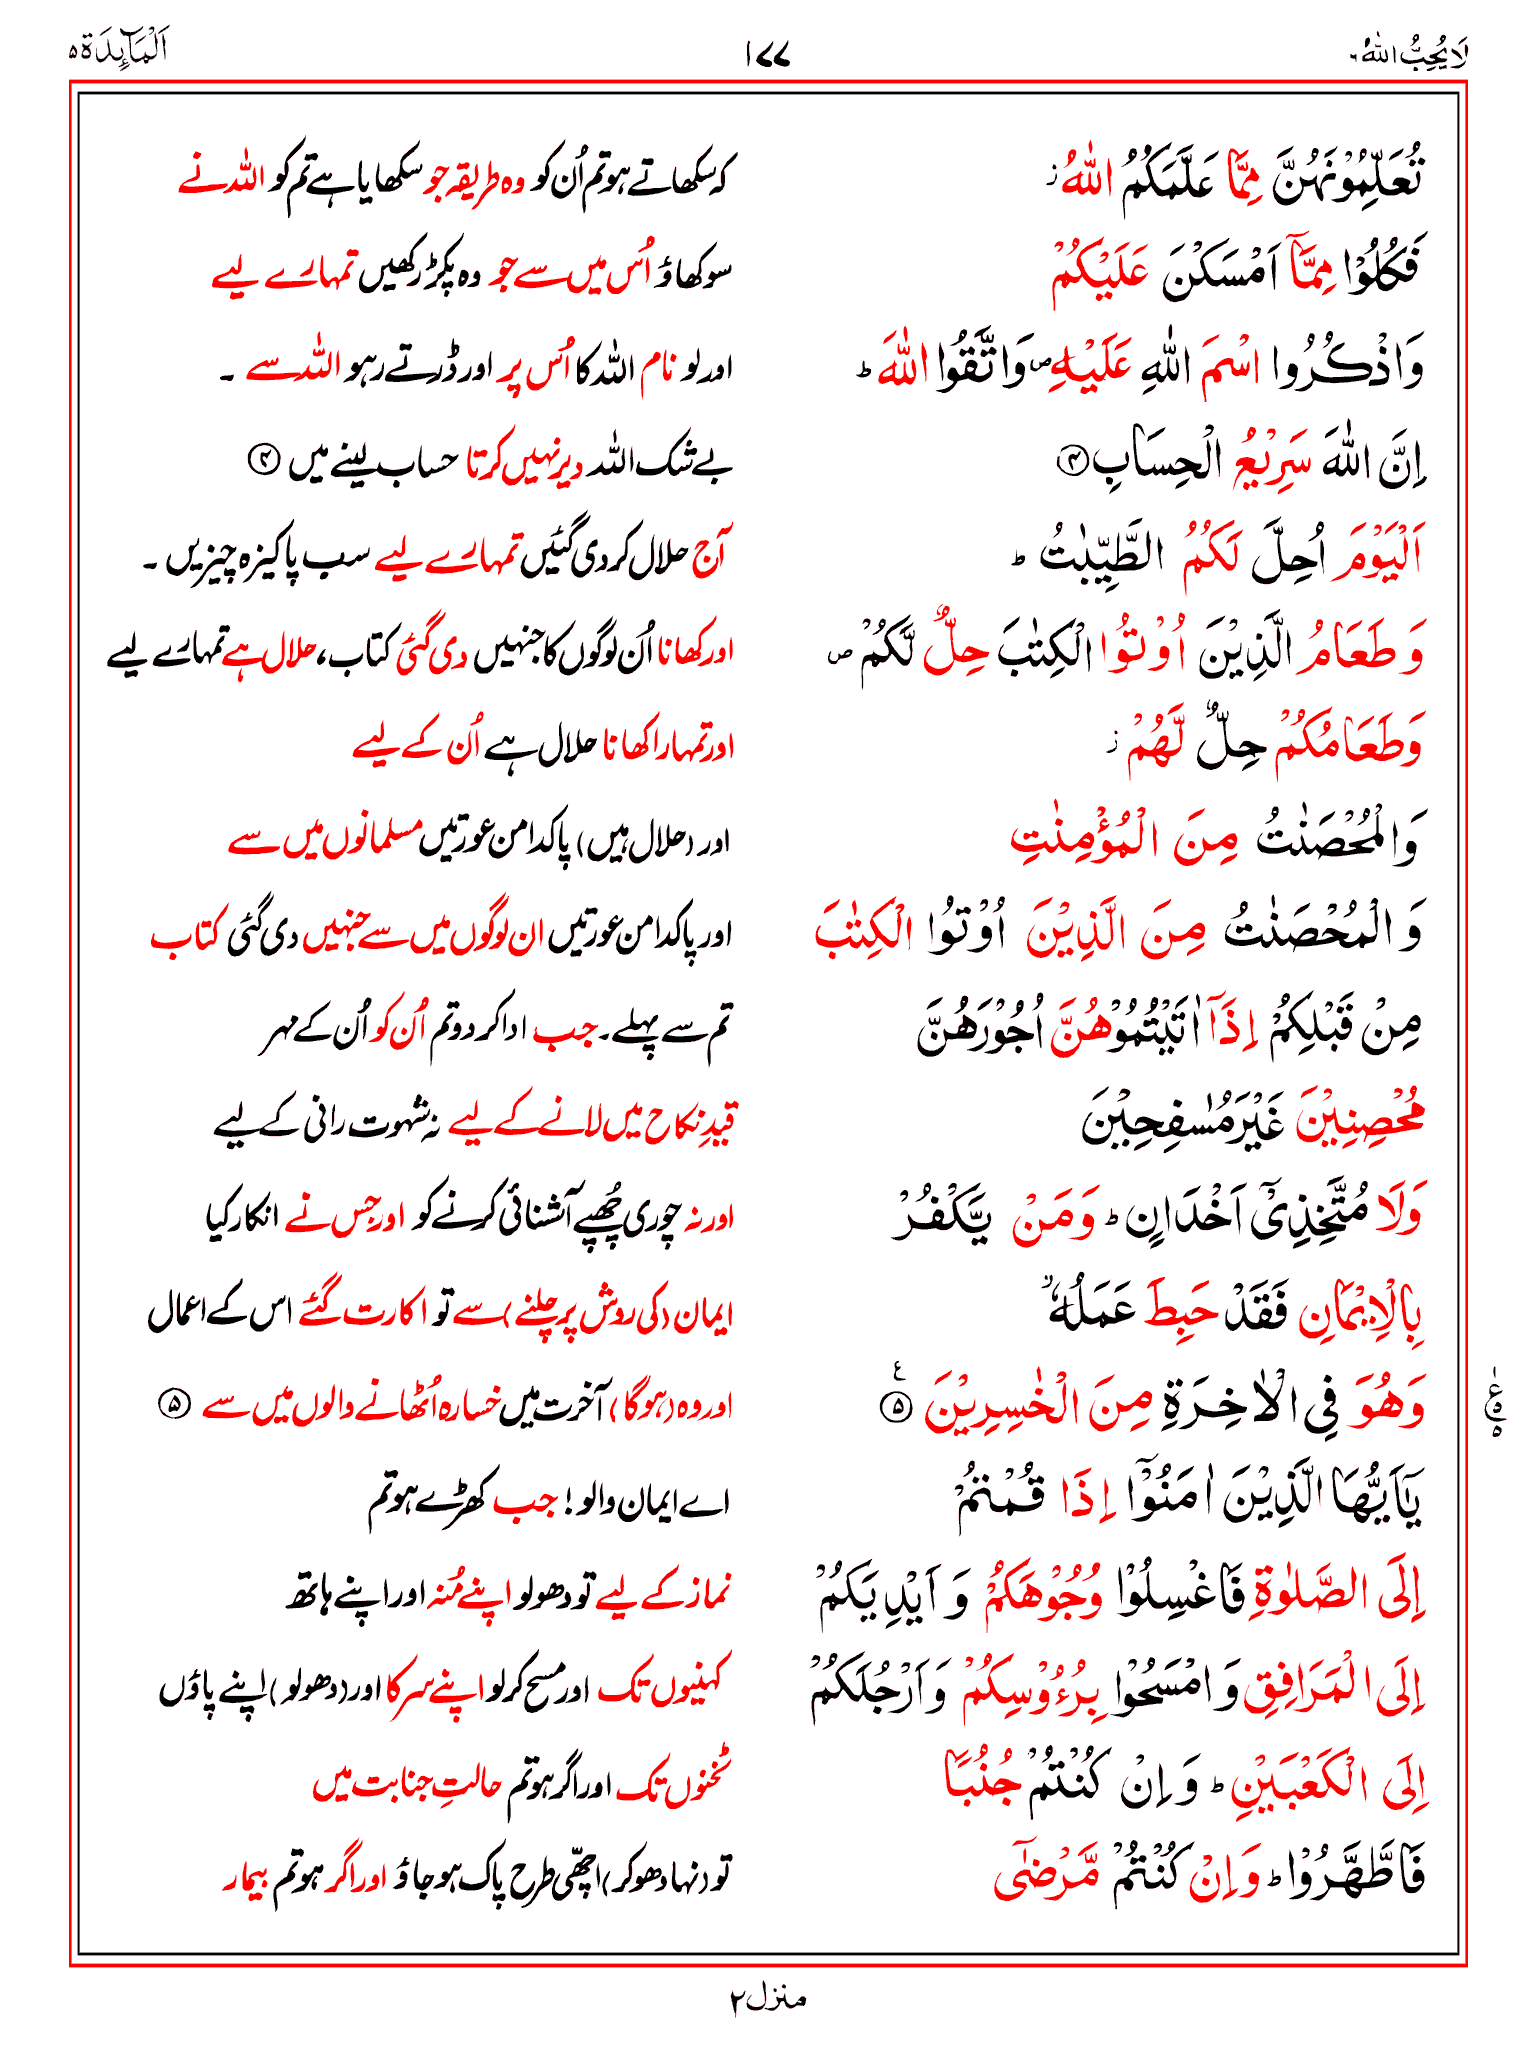 لَا يُحِبُّ اللّٰهُ ۶ ۱۷۷ اَلْمَآئِدَة ۵
تُعَلِّمُوْنَهُنَّ مِمَّا عَلَّمَكُمُ اللّٰهُ ز کہ سکھاتے ہو تم اُن کو وہ طریقہ جو سکھایا ہے تم کو اللہ نے
فَكُلُوْا مِمَّاۤ اَمْسَكْنَ عَلَيْكُمْ سو کھاؤ اُس میں سے جو وہ پکڑ رکھیں تمہارے لیے
وَاذْكُرُوا اسْمَ اللّٰهِ عَلَيْهِ ص وَاتَّقُوا اللّٰهَ ط اور لو نام اللہ کا اُس پر اور ڈرتے رہو اللہ سے ۔
اِنَّ اللّٰهَ سَرِيْعُ الْحِسَابِ ۴ بے شک اللہ دیر نہیں کرتا حساب لینے میں ۴
اَلْيَوْمَ اُحِلَّ لَكُمُ الطَّيِّبٰتُ ط آج حلال کر دی گئیں تمہارے لیے سب پاکیزہ چیزیں ۔
وَطَعَامُ الَّذِيْنَ اُوْتُوا الْكِتٰبَ حِلٌّ لَّكُمْ ص اور کھانا اُن لوگوں کا جنہیں دی گئی کتاب، حلال ہے تمہارے لیے
وَطَعَامُكُمْ حِلٌّ لَّهُمْ ز اور تمہارا کھانا حلال ہے اُن کے لیے
وَالْمُحْصَنٰتُ مِنَ الْمُؤْمِنٰتِ اور (حلال ہیں) پاکدامن عورتیں مسلمانوں میں سے
وَالْمُحْصَنٰتُ مِنَ الَّذِيْنَ اُوْتُوا الْكِتٰبَ اور پاکدامن عورتیں ان لوگوں میں سے جنہیں دی گئی کتاب
مِنْ قَبْلِكُمْ اِذَاۤ اٰتَيْتُمُوْهُنَّ اُجُوْرَهُنَّ تم سے پہلے۔ جب ادا کر دو تم اُن کو اُن کے مہر
مُحْصِنِيْنَ غَيْرَ مُسٰفِحِيْنَ قیدِ نکاح میں لانے کے لیے نہ شہوت رانی کے لیے
وَلَا مُتَّخِذِيْۤ اَخْدَانٍ ط وَمَنْ يَّكْفُرْ اور نہ چوری چُھپے آشنائی کرنے کو اور جس نے انکار کیا
بِالْاِيْمَانِ فَقَدْ حَبِطَ عَمَلُهٗ ز ایمان (کی روش پر چلنے) سے تو اکارت گئے اس کے اعمال
وَهُوَ فِي الْاٰخِرَةِ مِنَ الْخٰسِرِيْنَ ۵ ع اور وہ (ہوگا) آخرت میں خسارہ اُٹھانے والوں میں سے ۵
ع ۵ ۵
يٰۤاَيُّهَا الَّذِيْنَ اٰمَنُوْۤا اِذَا قُمْتُمْ اے ایمان والو! جب کھڑے ہو تم
اِلَى الصَّلٰوةِ فَاغْسِلُوْا وُجُوْهَكُمْ وَاَيْدِيَكُمْ نماز کے لیے تو دھو لو اپنے مُنہ اور اپنے ہاتھ
اِلَى الْمَرَافِقِ وَامْسَحُوْا بِرُءُوْسِكُمْ وَاَرْجُلَكُمْ کہنیوں تک اور مسح کر لو اپنے سر کا اور (دھو لو) اپنے پاؤں
اِلَى الْكَعْبَيْنِ ط وَاِنْ كُنْتُمْ جُنُبًا ٹخنوں تک اور اگر ہو تم حالتِ جنابت میں
فَاطَّهَّرُوْا ط وَاِنْ كُنْتُمْ مَّرْضٰۤى تو (نہا دھو کر) اچھّی طرح پاک ہو جاؤ اور اگر ہو تم بیمار
منزل ۲